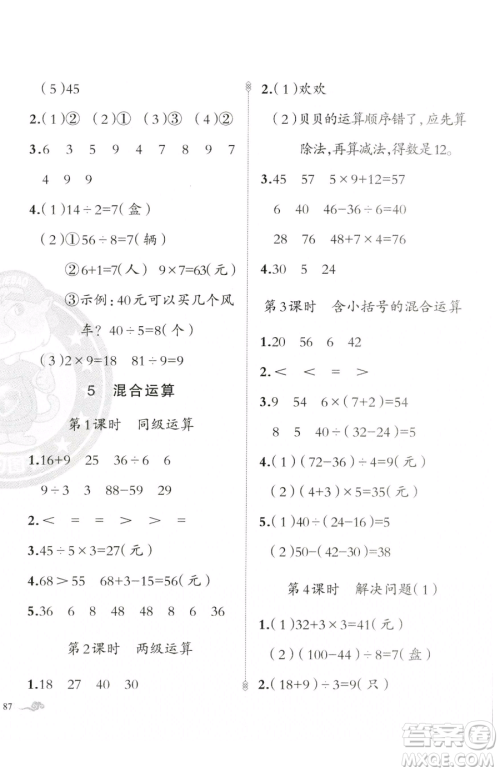 (5)45
2.(1)② (2)① (3)③ (4)②
3.6 3 5 9 4 7 8 9 7
4 9 9
4.(1)14÷2=7(盒)
(2)①56÷8=7(辆)
②6+1=7(人) 9×7=63(元)
③示例:40元可以买几个风
车? 40÷5=8(个)
(3)2×9=18 81÷9=9
5 混合运算
第1课时 同级运算
1.16+9 25 36÷6 6
9÷3 3 88-59 29
2.< = > =
3.45÷5×3=27(元)
4.68>55 68+3-55=16(元)
5.36 6 8 48 6 8 36 6
第2课时 两级运算
1.18 27 40 30
87
2.(1)欢欢
(2)贝贝的运算顺序错了,应先算
除法,再算减法,得数是12。
3.45 57 5×9+12=57
6 40 46-36÷6=40
28 76 48+4×7=76
4.30 5 24
第3课时 含小括号的混合运算
1.20 56 6 42
2.< < = >
3.9 54 6×(4+5)=54
55 5 40÷(63-55)=5
4.(1)(72-36)÷9=4(元)
(2)(4+3)×5=35(元)
5.(1)40÷(24-16)=5
(2)50-(20-8)=38
第4课时 解决问题(1)
1.(1)32+3-11=24(元)
(2)(10+6)÷8=2(盘)
2.(18+9)÷3=9(只)
答案圈
MXQE.COM